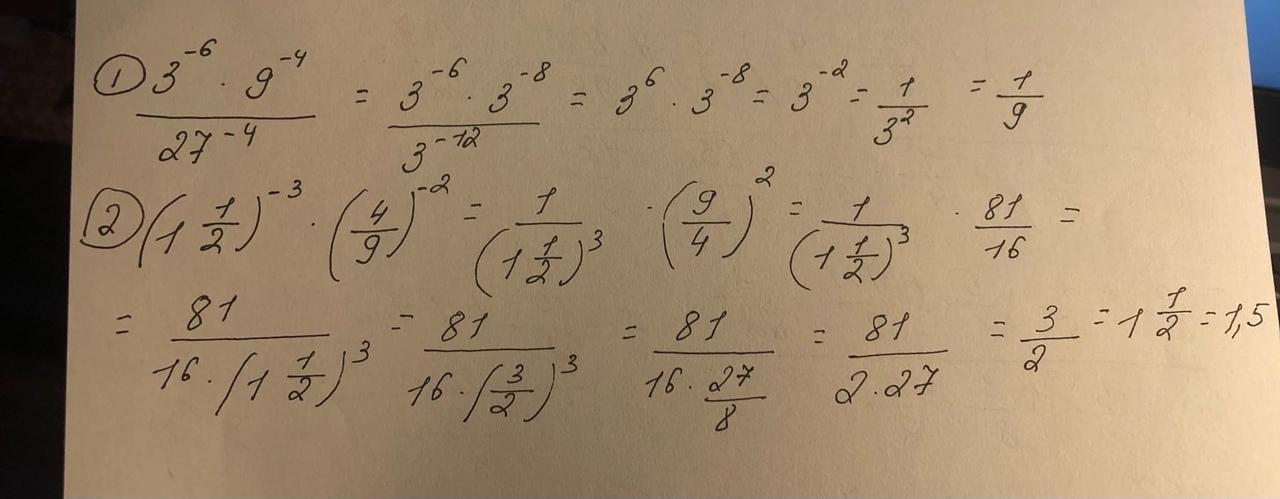 ① (3^-6 · 9^-4)/(27^-4) = (3^-6 · 3^-8)/(3^-12) = 3^6 · 3^-8 = 3^-2 = 1/3^2 = 1/9
② (1 1/2)^-3 · (4/9)^-2 = 1/(1 1/2)^3 · (9/4)^2 = 1/(1 1/2)^3 · 81/16 =
= 81/(16 · (1 1/2)^3) = 81/(16 · (3/2)^3) = 81/(16 · 27/8) = 81/(2 · 27) = 3/2 = 1 1/2 = 1,5